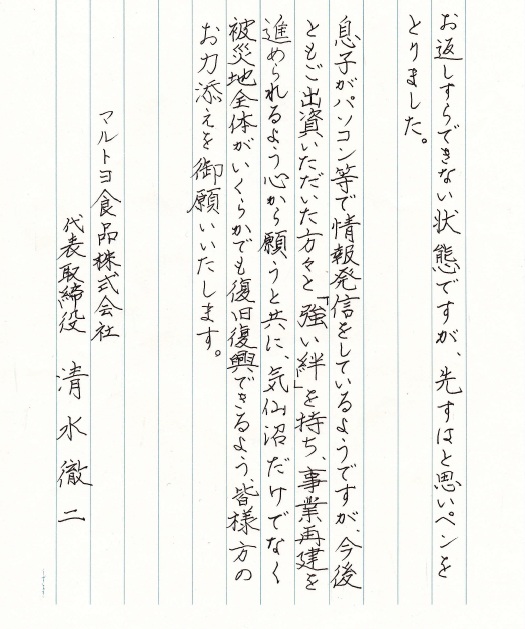 お返しすらできない状態ですが、先ずはと思いペンを
とりました。
息子がパソコン等で情報発信をしているようですが、今後
ともご出資いただいた方々と「強い絆」を持ち、事業再建を
進められるよう心から願うと共に、気仙沼だけでなく
被災地全体がいくらかでも復旧復興できるよう、皆様方の
お力添えを御願いいたします。
マルトヨ食品株式会社
代表取締役 清水徹二